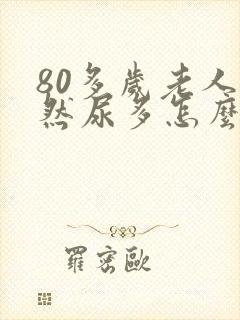 80多歲老人
然尿多怎麼
羅密歐